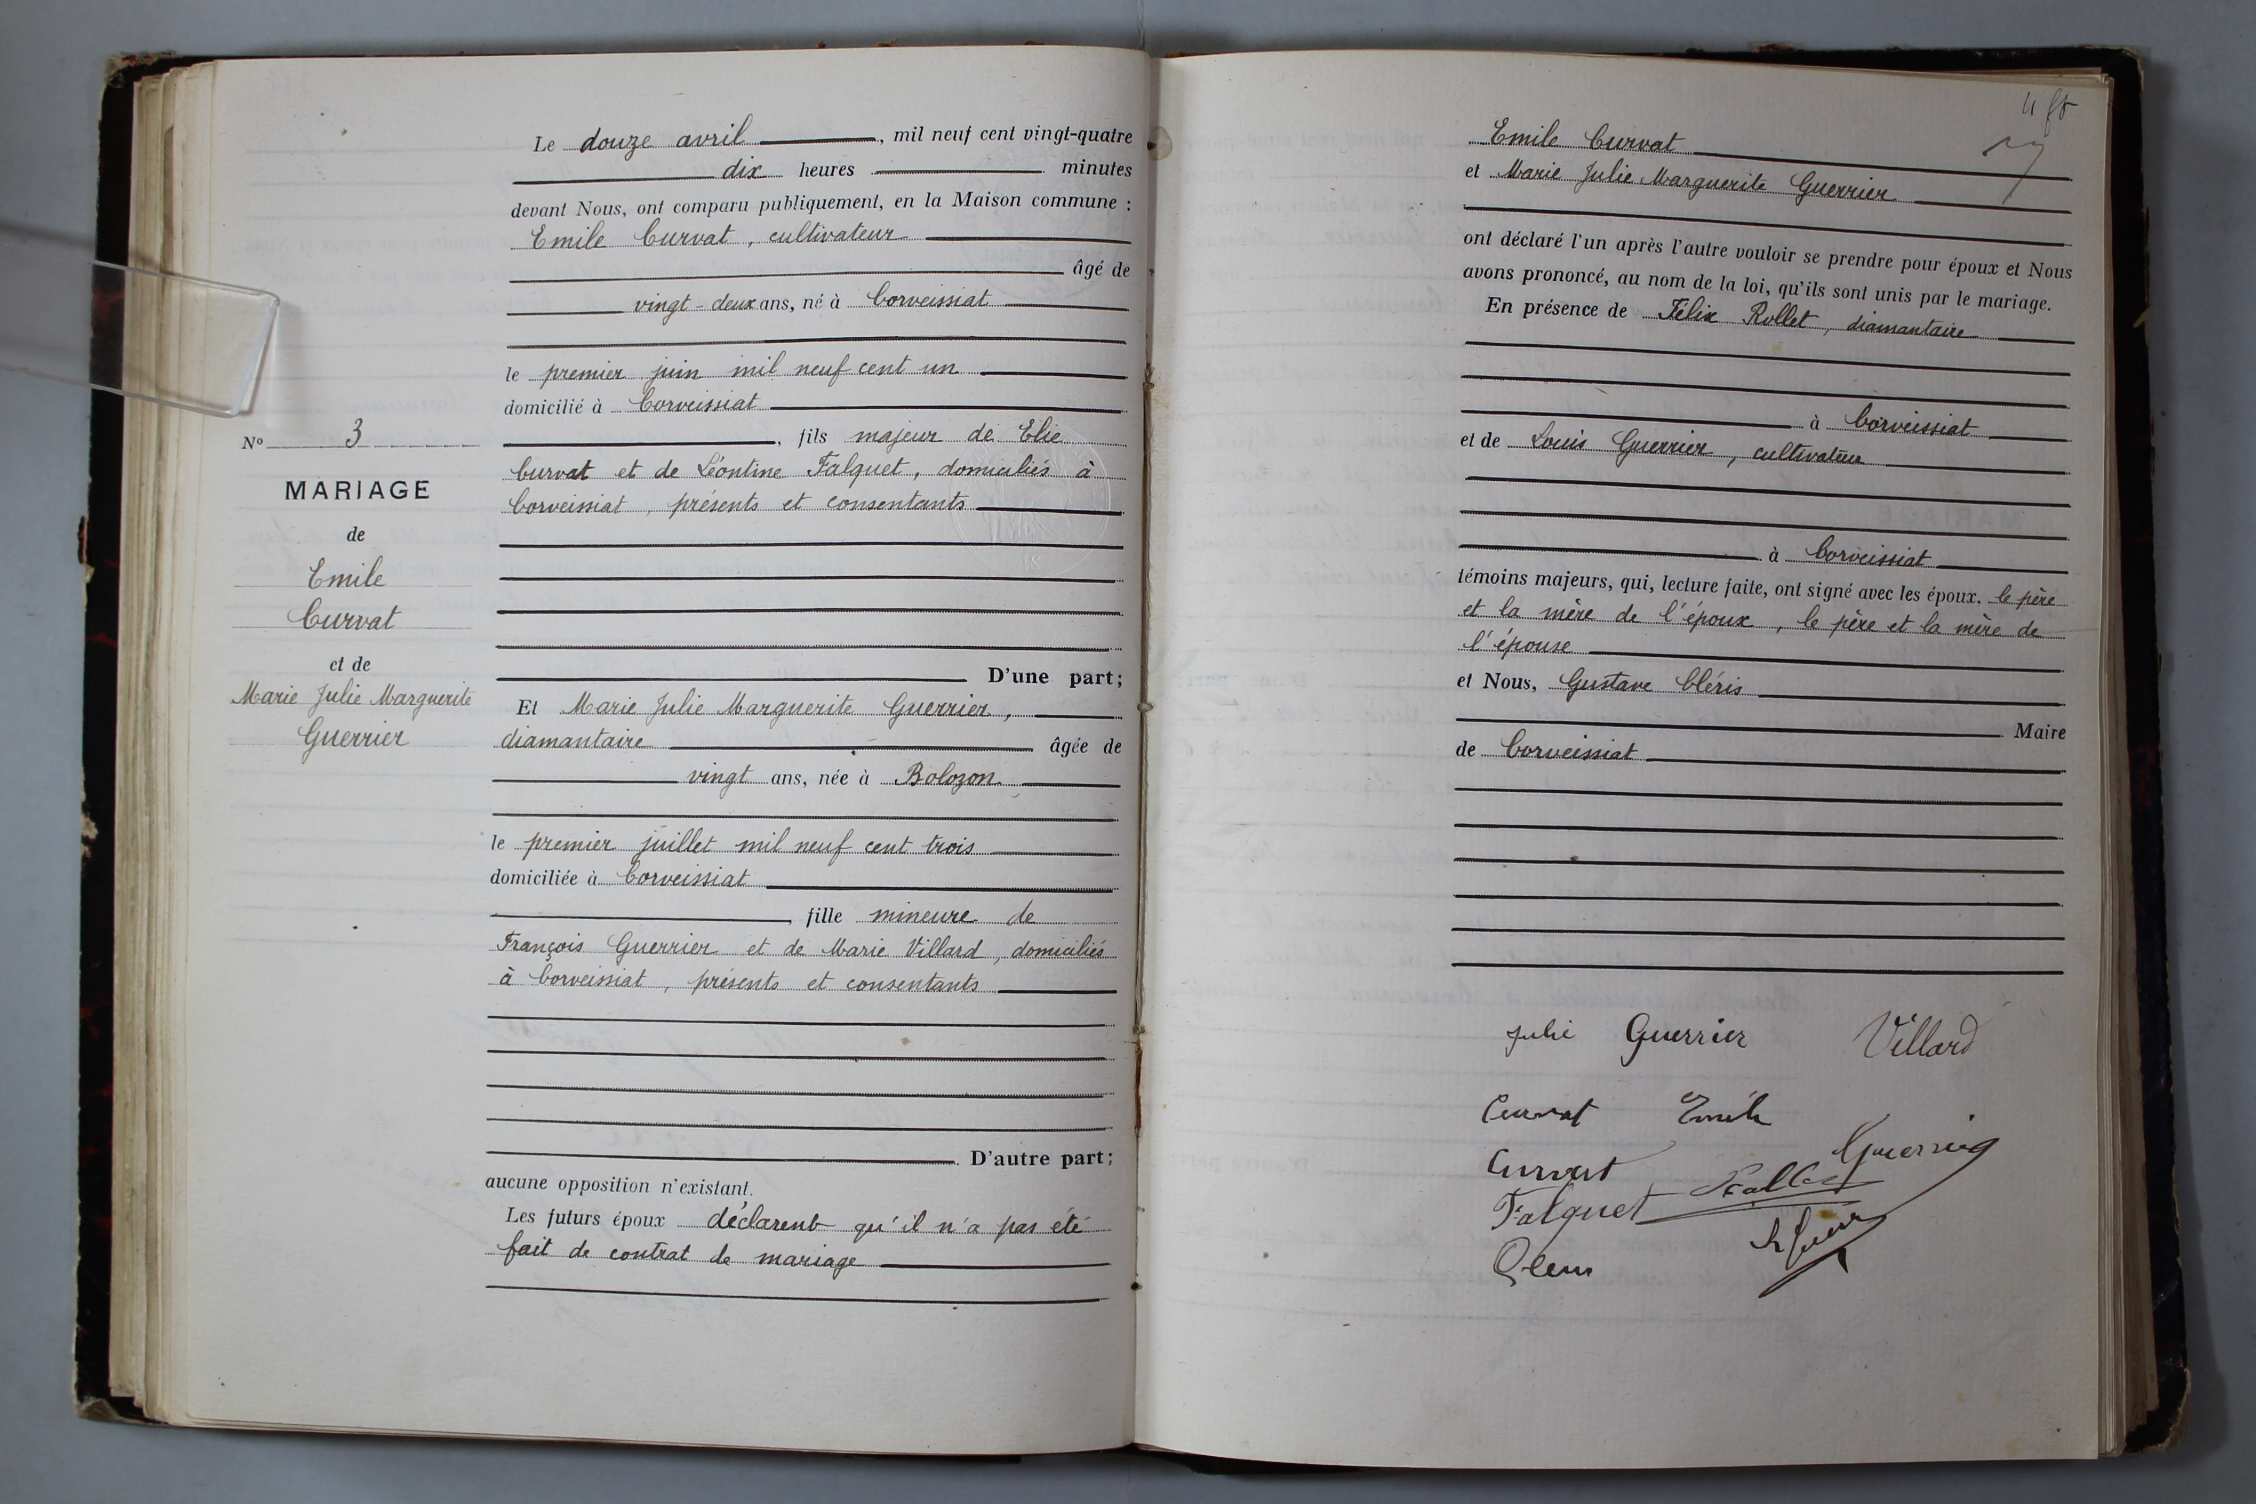 Le douze avril, mil neuf cent vingt-quatre
dix heures minutes
devant Nous, ont comparu publiquement, en la Maison commune :
Emile Curvat, cultivateur
âgé de
vingt-deux ans, né à Corveissiat
le premier juin mil neuf cent un
domicilié à Corveissiat
, fils majeur de Elie
Curvat et de Léontine Falquet, domiciliés à
Corveissiat, présents et consentants
D'une part;
Et Marie Julie Marguerite Guerrier,
diamantaire âgée de
vingt ans, née à Bolozon
le premier juillet mil neuf cent trois
domiciliée à Corveissiat
, fille mineure de
François Guerrier et de Marie Villard, domiciliés
à Corveissiat, présents et consentants
D'autre part;
aucune opposition n'existant.
Les futurs époux déclarent qu'il n'a pas été
fait de contrat de mariage
No 3
MARIAGE
de
Emile
Curvat
et de
Marie Julie Marguerite
Guerrier
Emile Curvat
et Marie Julie Marguerite Guerrier
ont déclaré l'un après l'autre vouloir se prendre pour époux et Nous
avons prononcé, au nom de la loi, qu'ils sont unis par le mariage.
En présence de Félix Rollet, diamantaire
à Corveissiat
et de Louis Guerrier, cultivateur
à Corveissiat
témoins majeurs, qui, lecture faite, ont signé avec les époux. le père
et la mère de l'époux, le père et la mère de
l'épouse
et Nous, Gustave Cléris
Maire
de Corveissiat
Julie Guerrier Villard
Curvat Emile
Curvat Guerrier
Falquet